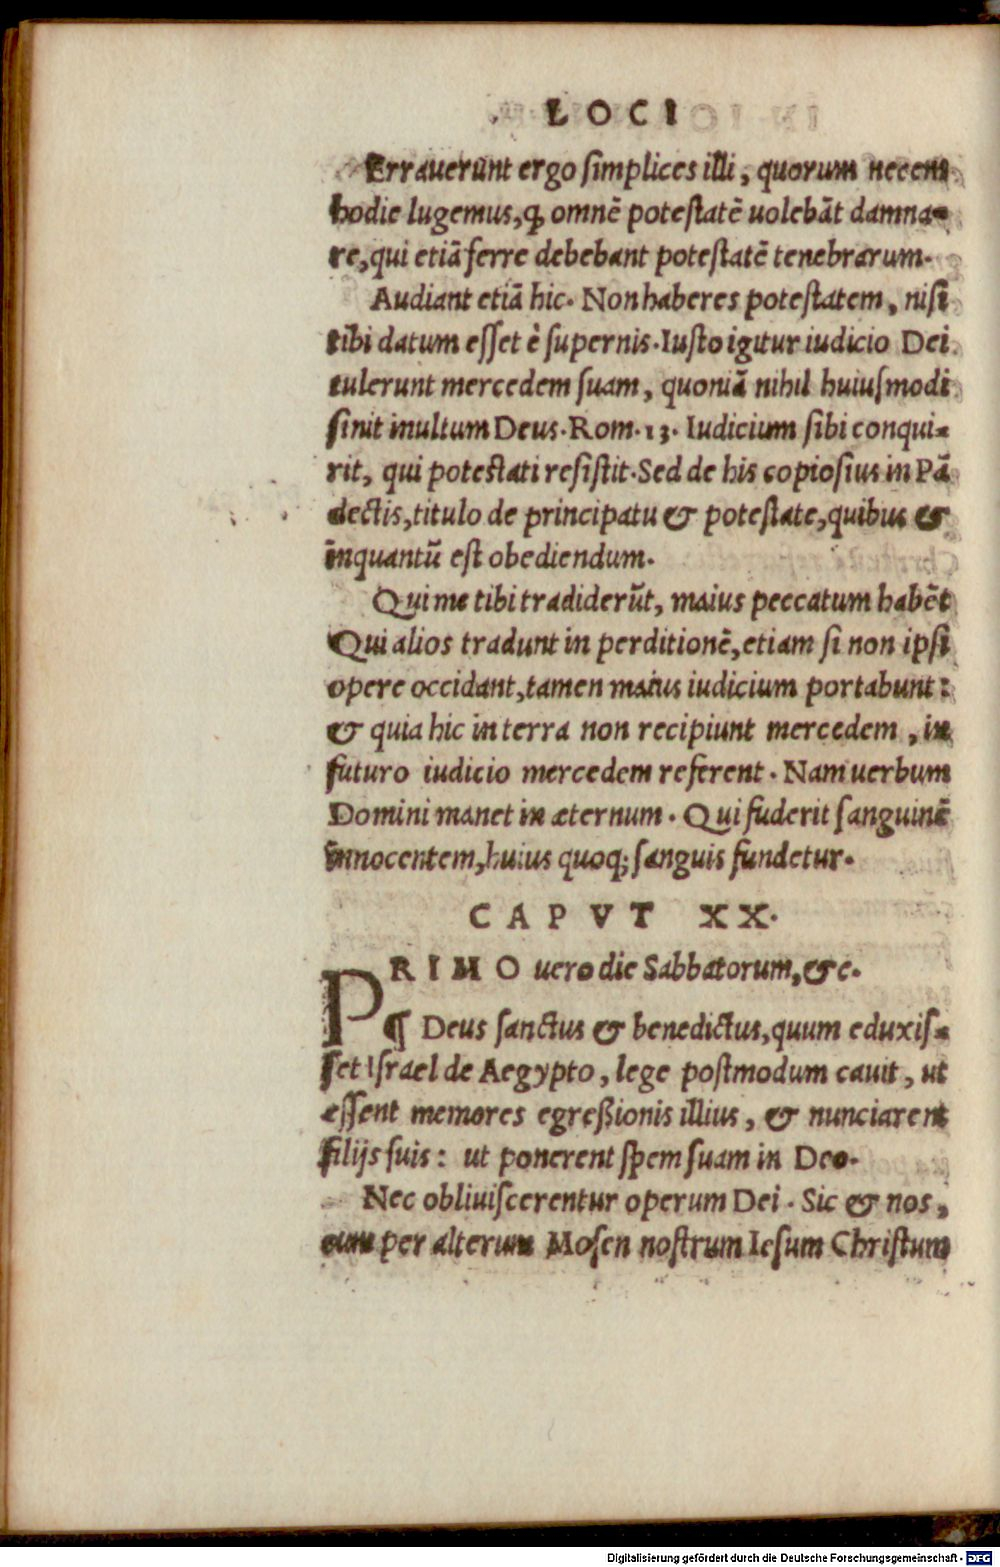 LOCI
Errauerunt ergo ſimplices illi, quorum necem
hodie lugemus, ꝙ omnẽ poteſtatẽ uolebãt damna-
re, qui etiã ferre debebant poteſtatẽ tenebrarum.
Audiant etiã hic. Non haberes poteſtatem, niſi
tibi datum eſſet è ſupernis. Iuſto igitur iudicio Dei
tulerunt mercedem ſuam, quoniã nihil huiuſmodi
ſinit inultum Deus. Rom. 13. Iudicium ſibi conqui-
rit, qui poteſtati reſiſtit. Sed de his copioſius in Pã
dectis, titulo de principatu & poteſtate, quibus &
inquantũ eſt obediendum.
Qui me tibi tradiderũt, maius peccatum habẽt
Qui alios tradunt in perditionẽ, etiam ſi non ipſi
opere occidant, tamen maius iudicium portabunt:
& quia hic in terra non recipiunt mercedem, in
futuro iudicio mercedem referent. Nam uerbum
Domini manet in æternum. Qui fuderit ſanguinẽ
innocentem, huius quoq; ſanguis fundetur.
CAPVT XX.
PRIMO uero die Sabbatorum, &c.
¶ Deus ſanctus & benedictus, quum eduxiſ-
ſet Iſrael de Aegypto, lege poſtmodum cauit, ut
eſſent memores egreßionis illius, & nunciarent
filijs ſuis: ut ponerent ſpem ſuam in Deo.
Nec obliuiſcerentur operum Dei. Sic & nos,
cum per alterum Moſen noſtrum Ieſum Chriſtum
Digitalisierung gefördert durch die Deutsche Forschungsgemeinschaft - DFG